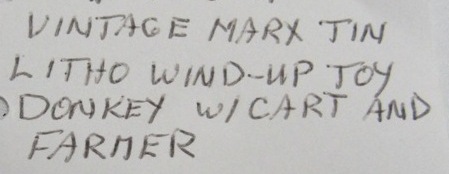 VINTAGE MARX TIN
LITHO WIND-UP TOY
DONKEY W/ CART AND
FARMER